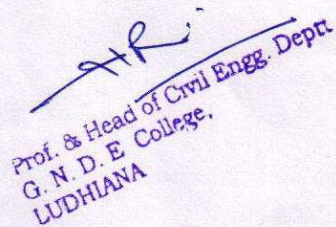 Prof. & Head of Civil Engg. Deptt
G. N. D. E College,
LUDHIANA